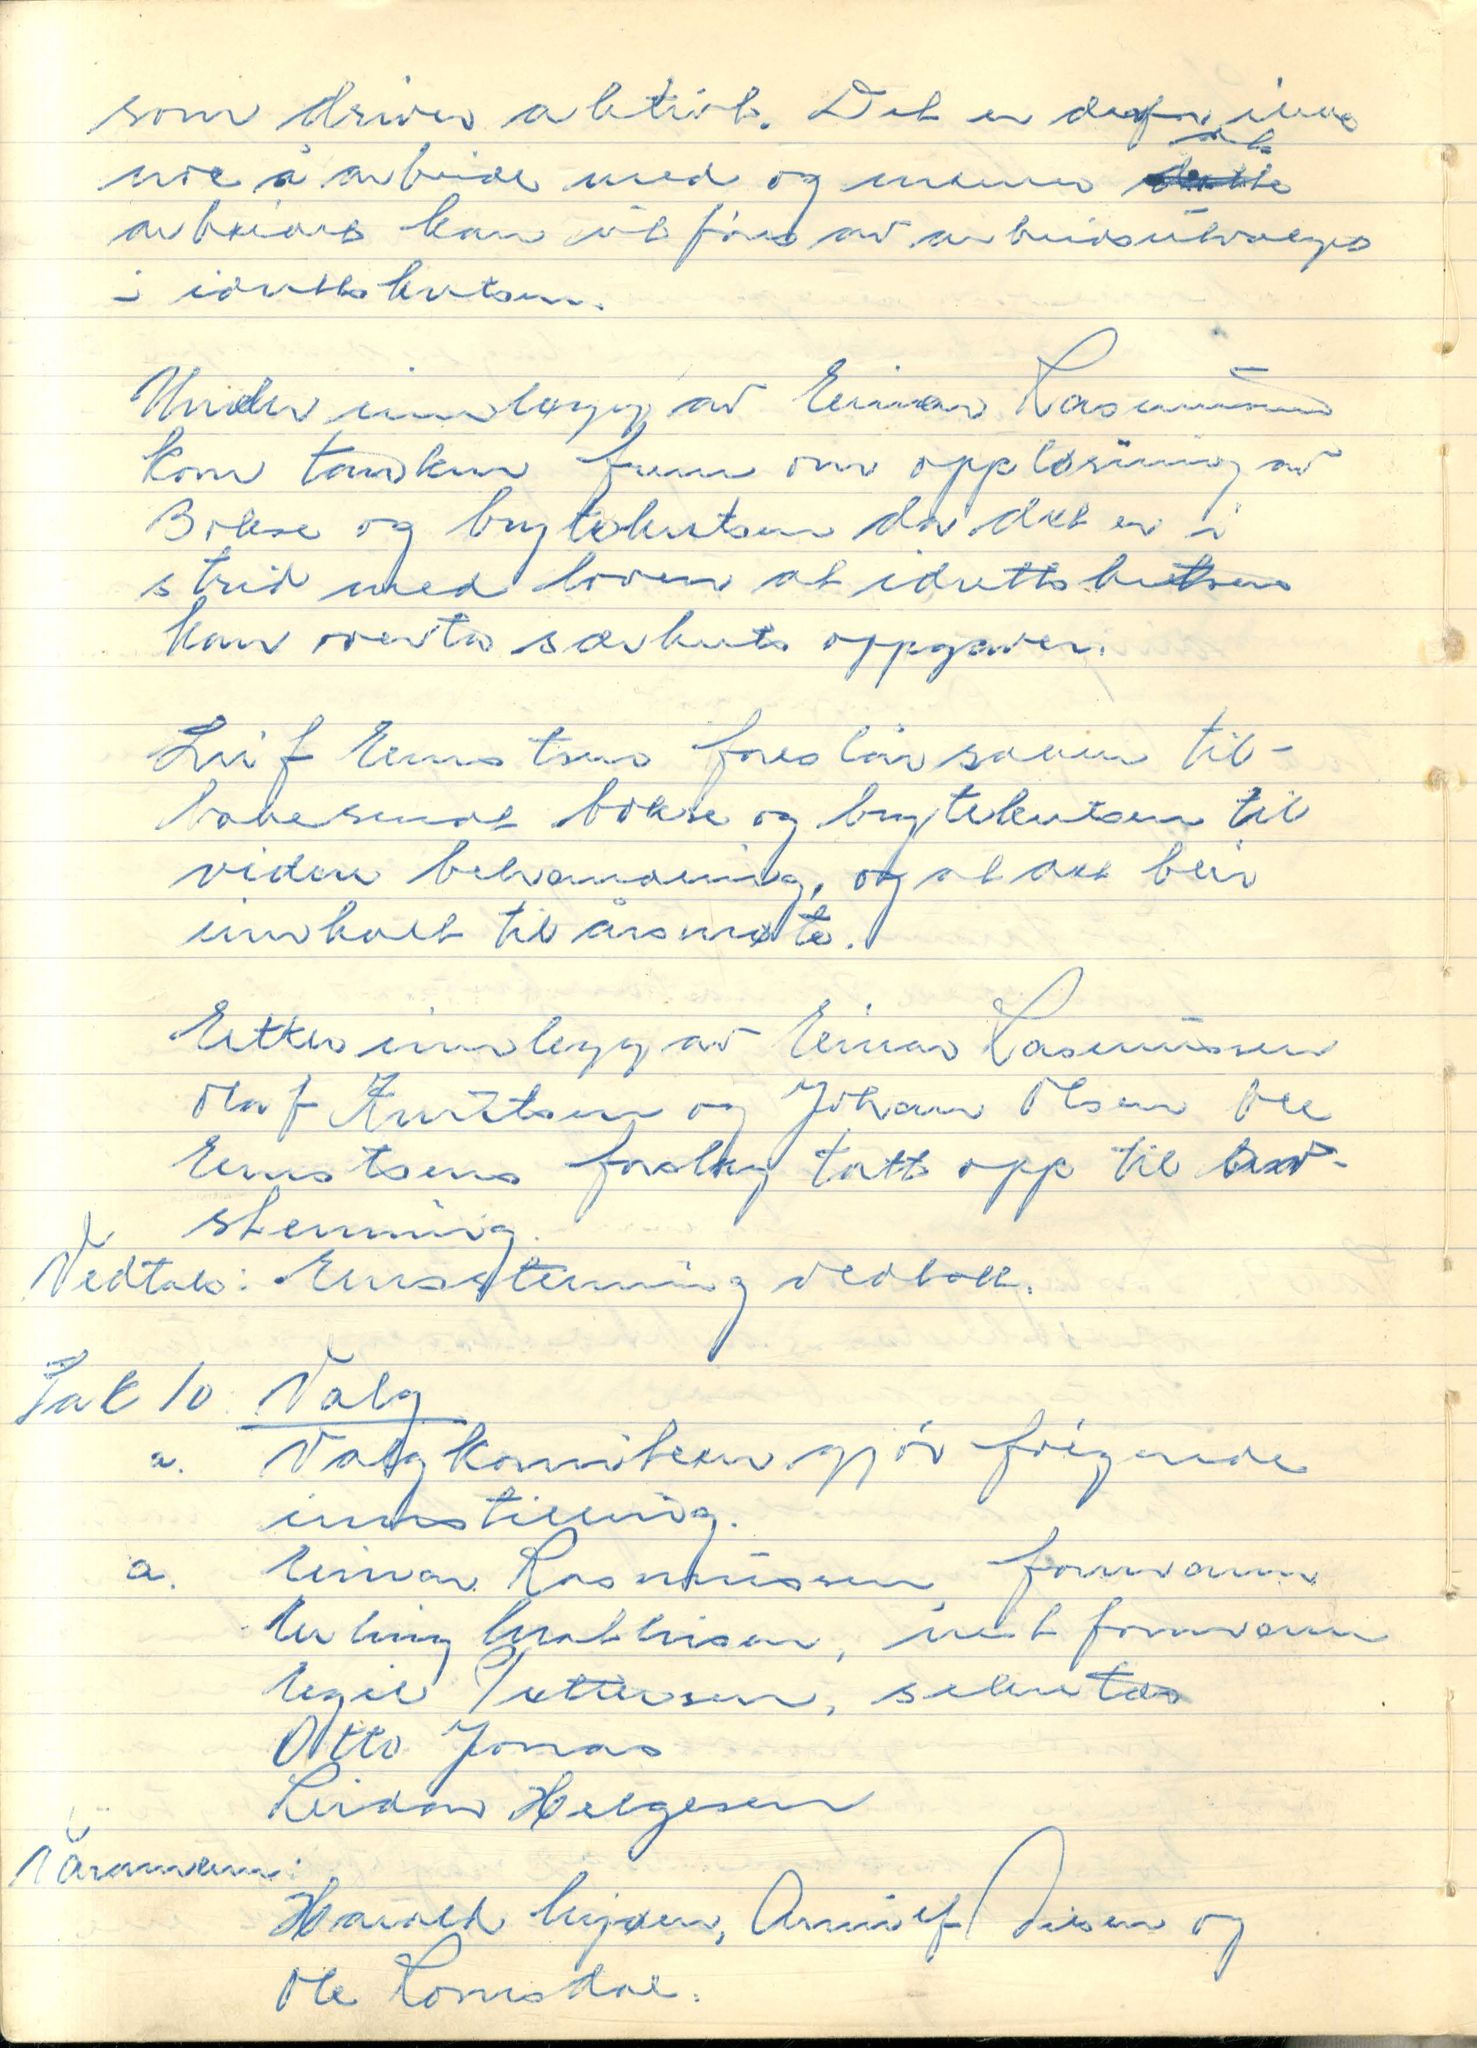 som driver aktivt. Det er derfor intet
noe å arbeide med og mener det
arbeidet kan utføres av arbeidsutvalget
i idrettskretsen.
Under innlegg av Einar Rasmussen
kom tanken frem om oppløsning av
Bokse og brytekretsen da det er i
strid med loven at idrettskretsen
kan overta særkrets oppgaver.
Leif Ernstsen foreslår saken til-
bakesendt bokse og brytekretsen til
videre behandling, og at det blir
innkalt til årsmøte.
Etter innlegg av Einar Rasmussen
Olaf Knutsen og Johan Olsen ble
Ernstsens forslag tatt opp til av-
stemming.
Vedtak: Enstemmig vedtatt.
Sak 10 Valg
a. Valgkomiteen gjør følgende
innstilling.
a. Einar Rasmussen, formann
Erling Mathisen, nestformann
Egil Pettersen, sekretær
Otto Jonas
Reidar Helgesen
Varamenn:
Harald, Arnulf Nilsen og
Ole Romsdal.